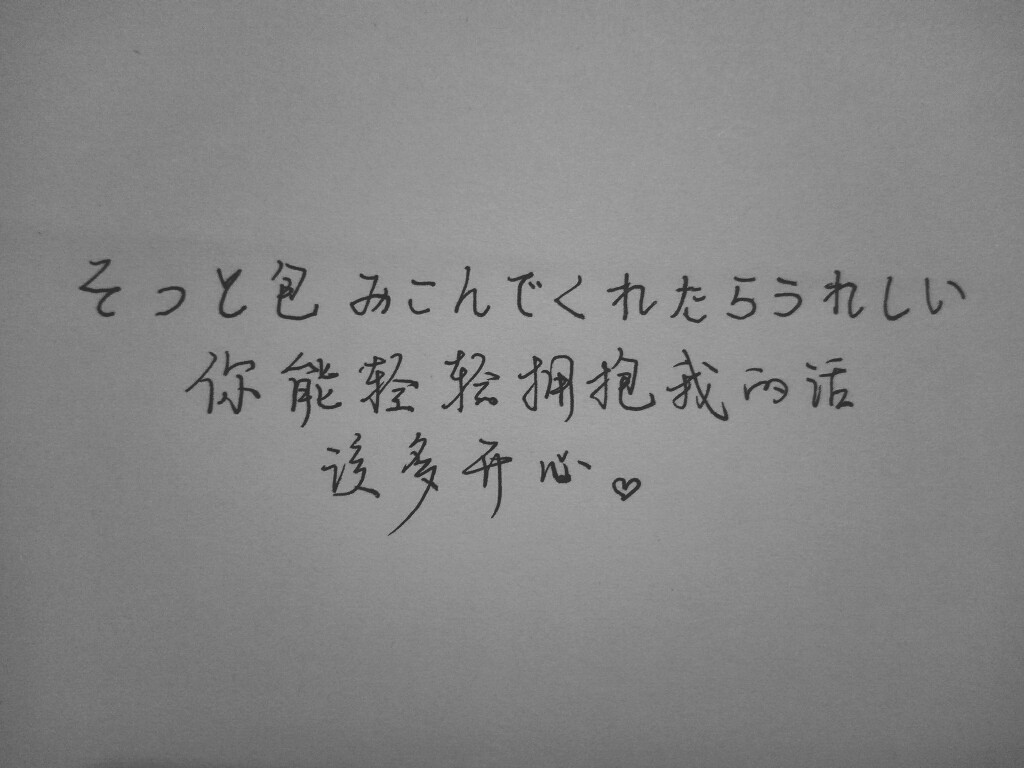 そっと包みこんでくれたらうれしい
你能轻轻拥抱我的话
该多开心♡